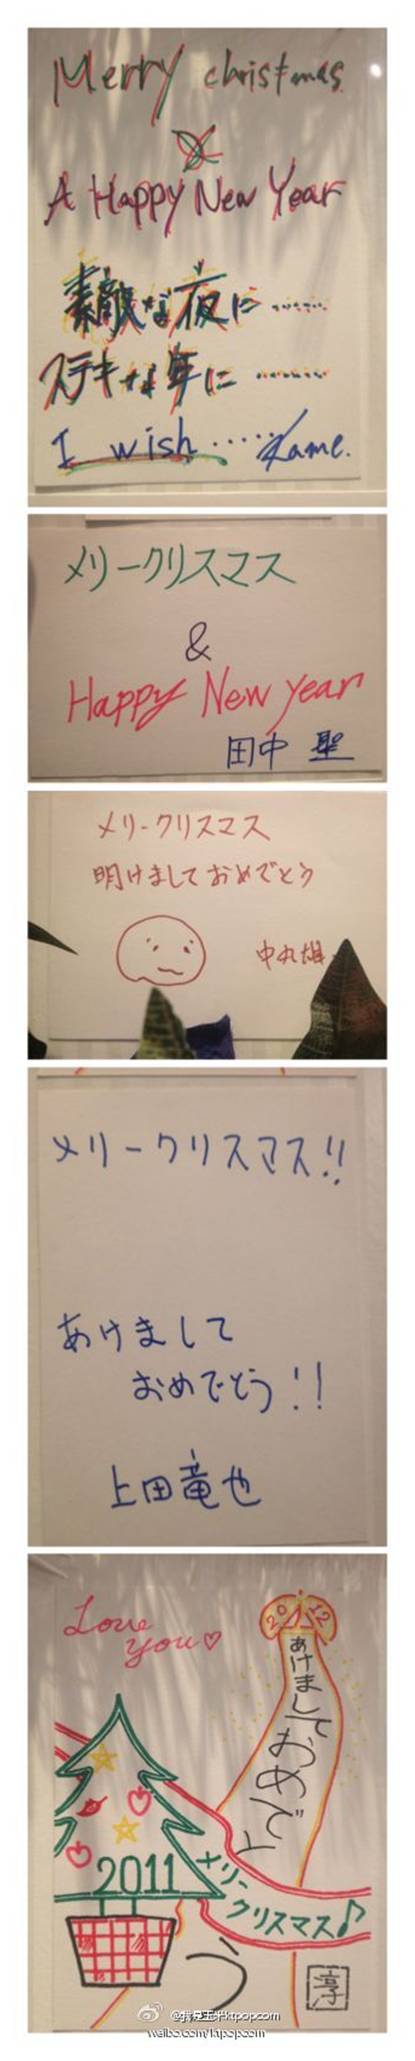 Merry christmas
&
A Happy New Year
素敵な夜に……
ステキな年に……
I wish…… Kame.
メリークリスマス
&
Happy New Year
田中 聖
メリークリスマス
明けましておめでとう
中丸雄
メリークリスマス!!
あけまして
おめでとう!!
上田竜也
Love
you♡
2012
あけましておめでとう
2011
メリー
クリスマス♪
淳
@我是玉米ktpopcom
weibo.com/ktpopcom